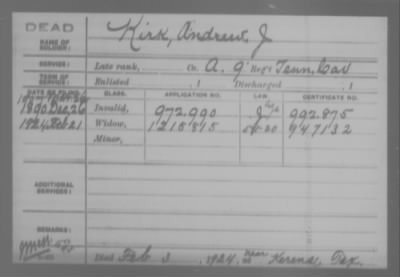 DEAD
NAME OF SOLDIER: Kirk, Andrew J
SERVICE: Late rank, Co. A. 9 Reg't Tenn. Cav
TERM OF SERVICE: Enlisted , 1 Discharged , 1
DATE OF FILING. CLASS. APPLICATION NO. LAW. CERTIFICATE NO.
1890 Dec 26 Invalid, 972.990 992.875
1924, Feb 21 Widow, 1215815 947132
Minor,
ADDITIONAL SERVICES:
REMARKS:
Died Feb 3, 1924, near at Kerens, Tex.